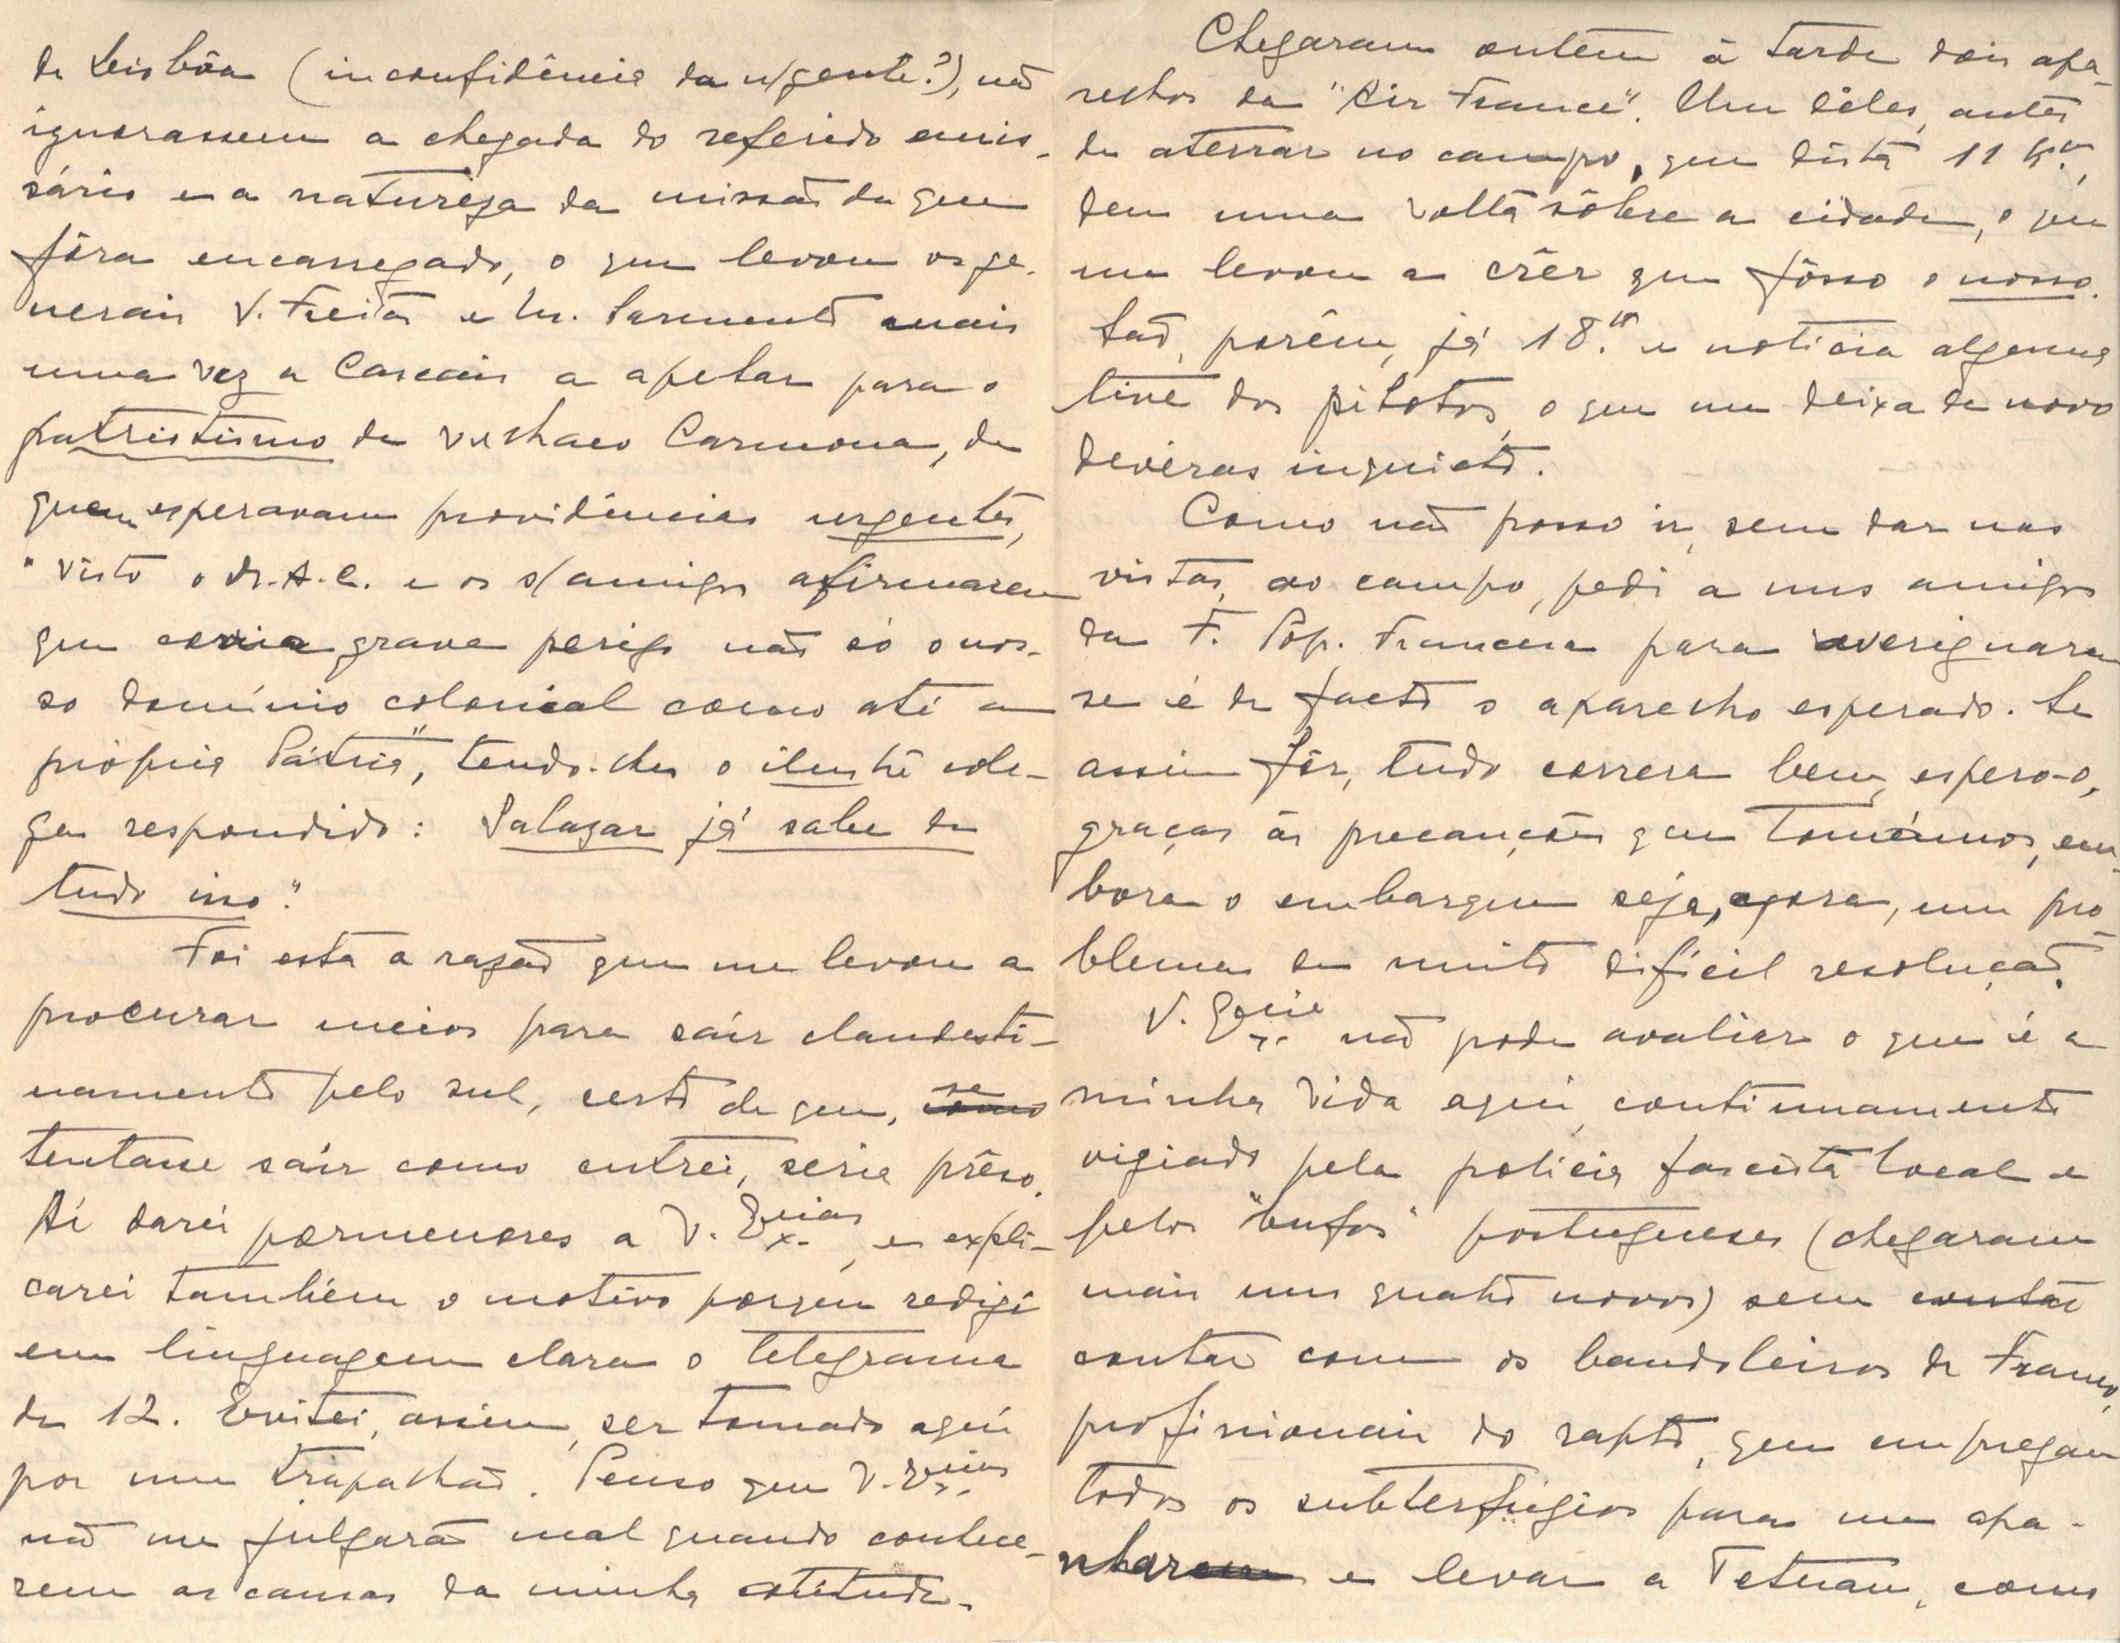 de Lisbôa (inconfidência da n/gente?), não
ignorassem a chegada do referido emis-
sário e a natureza da missão de que
fôra encarregado, o que levou os ge-
nerais V. Freitas e M. Sarmento mais
uma vez a Cascais a apelar para o
patriotismo do velhaco Carmona, de
quem esperavam providências urgentes,
"visto o dr. A. C. e os s/amigos afirmarem
que corria grave perigo não só o nos-
so domínio colonial como até a
própria Pátria", tendo-lhes o ilustre cole-
ga respondido: Salazar já sabe de
tudo isso".
Foi esta a razão que me levou a
procurar meios para saír clandesti-
namente pelo sul, certo de que, se
tentasse saír como entrei, seria prêso.
Aí darei pormenores a V. Excias, e expli-
carei também o motivo porque redigi
em linguagem clara o telegrama
de 12. Evitei, assim, ser tomado aqui
por um trapalhão. Penso que V. Excias
não me julgarão mal quando conhece-
rem as causas da minha atitude.
Chegaram ontem à tarde dois apa-
relhos da "Air France". Um dêles, antes
de aterrar no campo, que dista 11 km.,
deu uma volta sôbre a cidade, o que
me levou a crêr que fôsse o nosso.
São, porêm, já 18.hs e notícia alguma
tive dos pilotos, o que me deixa de novo
deveras inquieto.
Como não posso ir, sem dar nas
vistas, ao campo, pedi a uns amigos
da F. Pop. Francesa para averiguarem
se é de facto o aparelho esperado. Se
assim fôr, tudo correrá bem, espero-o,
graças às precauções que tomámos, em-
bora o embarque seja, agora, um pro-
blema de muito difícil resolução.
V. Excia não pode avaliar o que é a
minha vida aqui, continuamente
vigiado pela polícia fascista local e
pelos "bufos" portugueses (chegaram
mais uns quatro novos) sem contar
contar com os bandoleiros de Franco,
profissionais do rapto, que empregam
todos os subterfúgios para me apa-
nhar e levar a Tetuan, como